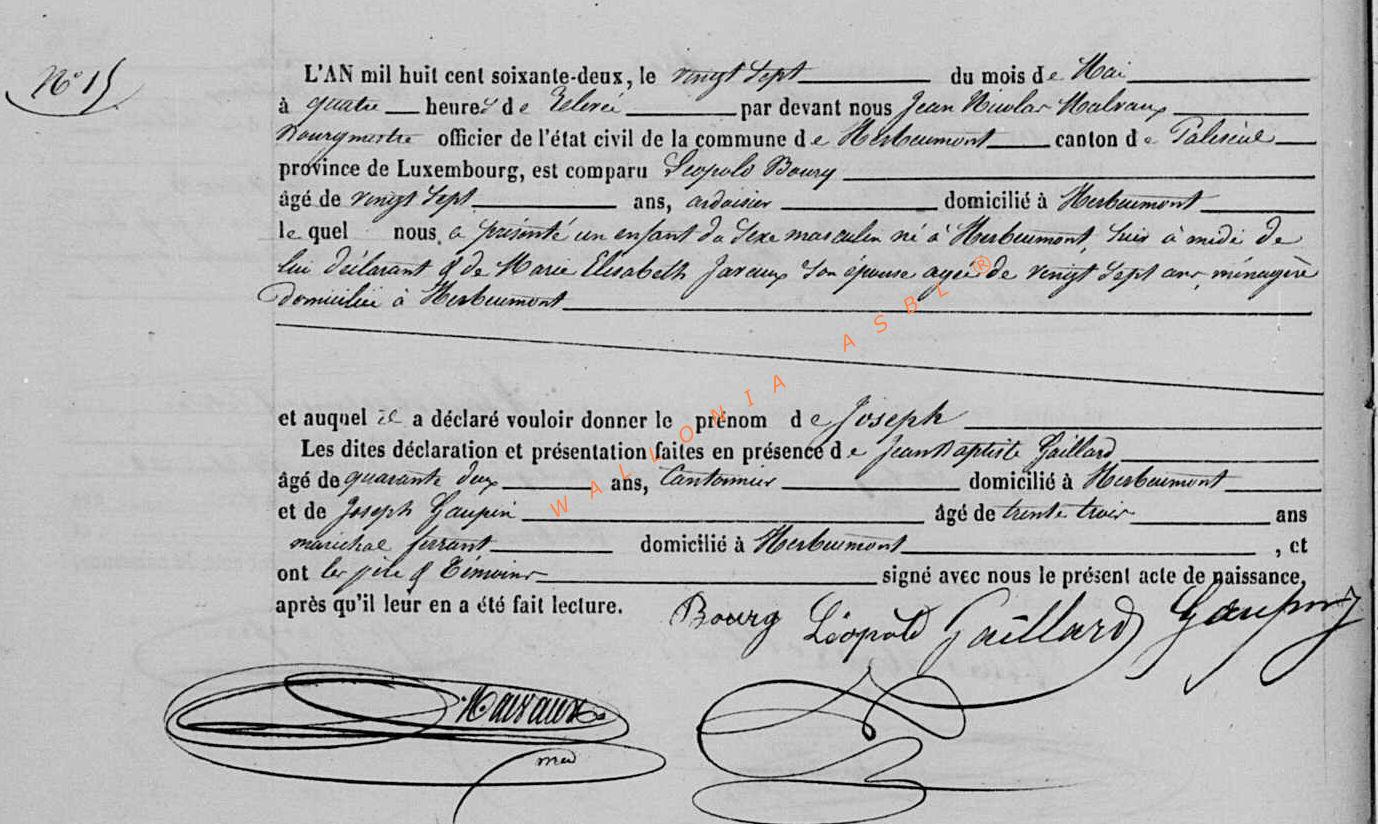 N° 15
L'AN mil huit cent soixante-deux, le vingt sept du mois de Mai
à quatre heures de relevée par devant nous Jean Nicolas Malvaux
Bourgmestre officier de l'état civil de la commune de Herbeumont canton de Paliseul
province de Luxembourg, est comparu Léopold Bourg
âgé de vingt sept ans, ardoisier domicilié à Herbeumont
le quel nous a présenté un enfant du sexe masculin né à Herbeumont, à midi de
lui déclarant & de Marie Elisabeth son épouse agée de vingt sept ans, ménagère
domiciliée à Herbeumont
et auquel il a déclaré vouloir donner le prénom de Joseph
Les dites déclaration et présentation faites en présence de Jean Baptiste Gaillard
âgé de quarante deux ans, Cantonnier domicilié à Herbeumont
et de Joseph Gaupin âgé de trente trois ans
maréchal ferrant domicilié à Herbeumont, et
ont les père & témoins signé avec nous le présent acte de naissance,
après qu'il leur en a été fait lecture. Bourg Léopold Gaillard Gaupin
Malvaux
WALLONIA ASBL ®